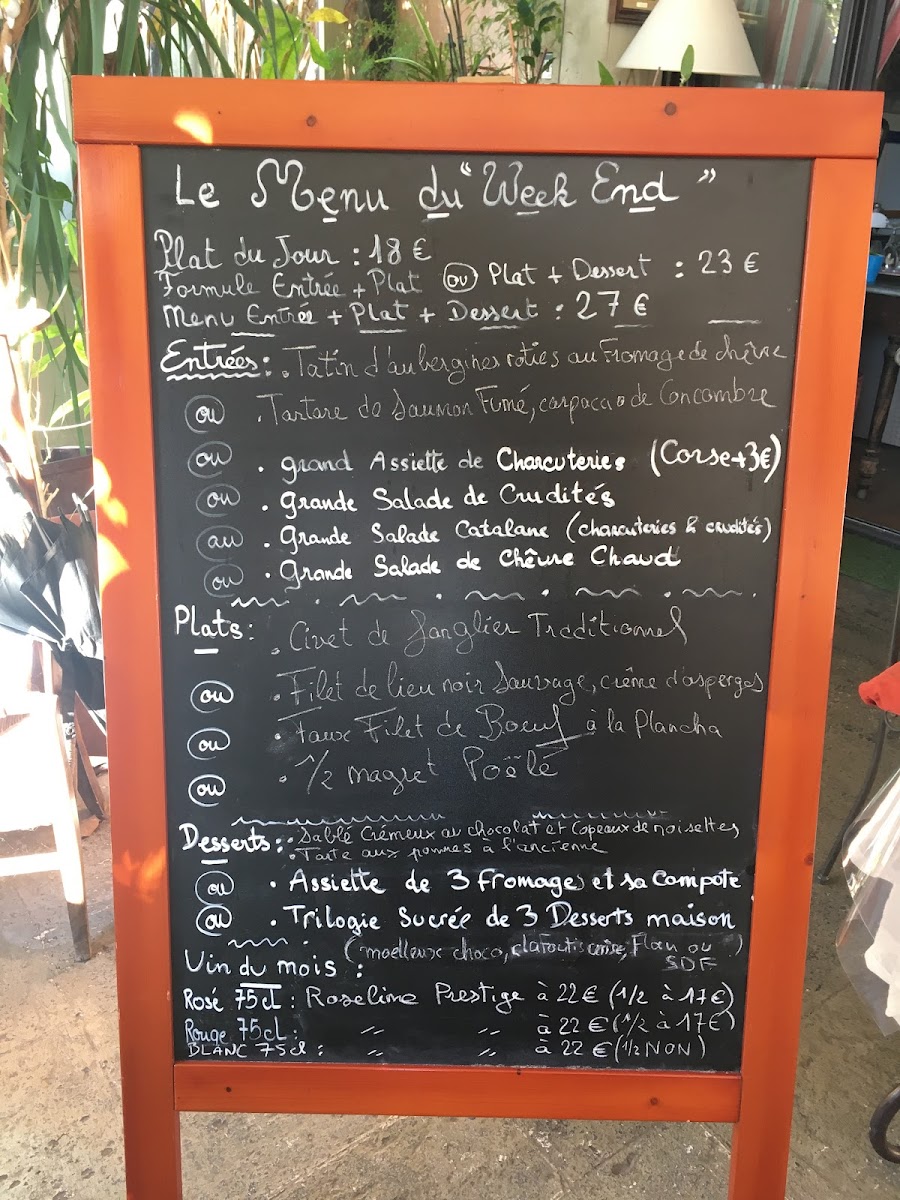 Le Menu du "Week End"
Plat du Jour : 18 €
Formule Entrée + Plat ou Plat + Dessert : 23 €
Menu Entrée + Plat + Dessert : 27 €
Entrées : . Tatin d'aubergines roties au Fromage de chêvre
ou . Tartare de Saumon Fumé, carpaccio de Concombre
ou . grand Assiette de Charcuteries (Corse+3€)
ou . grande Salade de Crudités
au . grande Salade Catalane (charcuteries & crudités)
ou . grande Salade de Chêvre Chaud
Plats : . Civet de Sanglier Traditionnel
ou . Filet de lieu noir Sauvage, crême d'asperges
ou . Faux Filet de Boeuf à la Plancha
ou . 1/2 magret Poêlé
Desserts : . Sablé Crémeux au chocolat et Copeaux de noisettes
. Tarte aux pommes à l'ancienne
ou . Assiette de 3 fromages et sa Compote
ou . Trilogie Sucrée de 3 Desserts maison
(moelleux choco, clafoutis cerise, Flan ou SDF)
Vin du mois :
Rosé 75cl : Roseline Prestige à 22 € (1/2 à 17€)
Rouge 75cl : " " à 22 € (1/2 à 17€)
BLANC 75cl : " " à 22 € (1/2 NON)